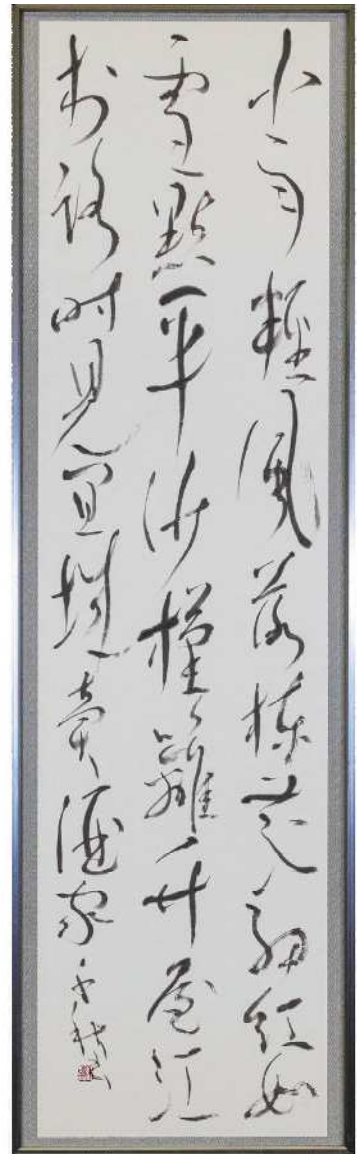 小雨輕風落楝花細紅如
雪點平沙槿籬竹屋江
村路時見宜城賣酒家